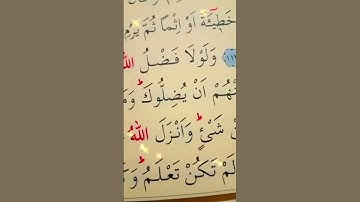 خَطِيـَٔةً اَوْ اِثْمًا ثُمَّ يَرْمِ
﴿١١٢﴾ وَلَوْلَا فَضْلُ اللّٰهِ
نْهُمْ اَنْ يُضِلُّوكَ وَمَ
نْ شَىْءٍ وَاَنْزَلَ اللّٰهُ
لَمْ تَكُنْ تَعْلَمُ وَكَ